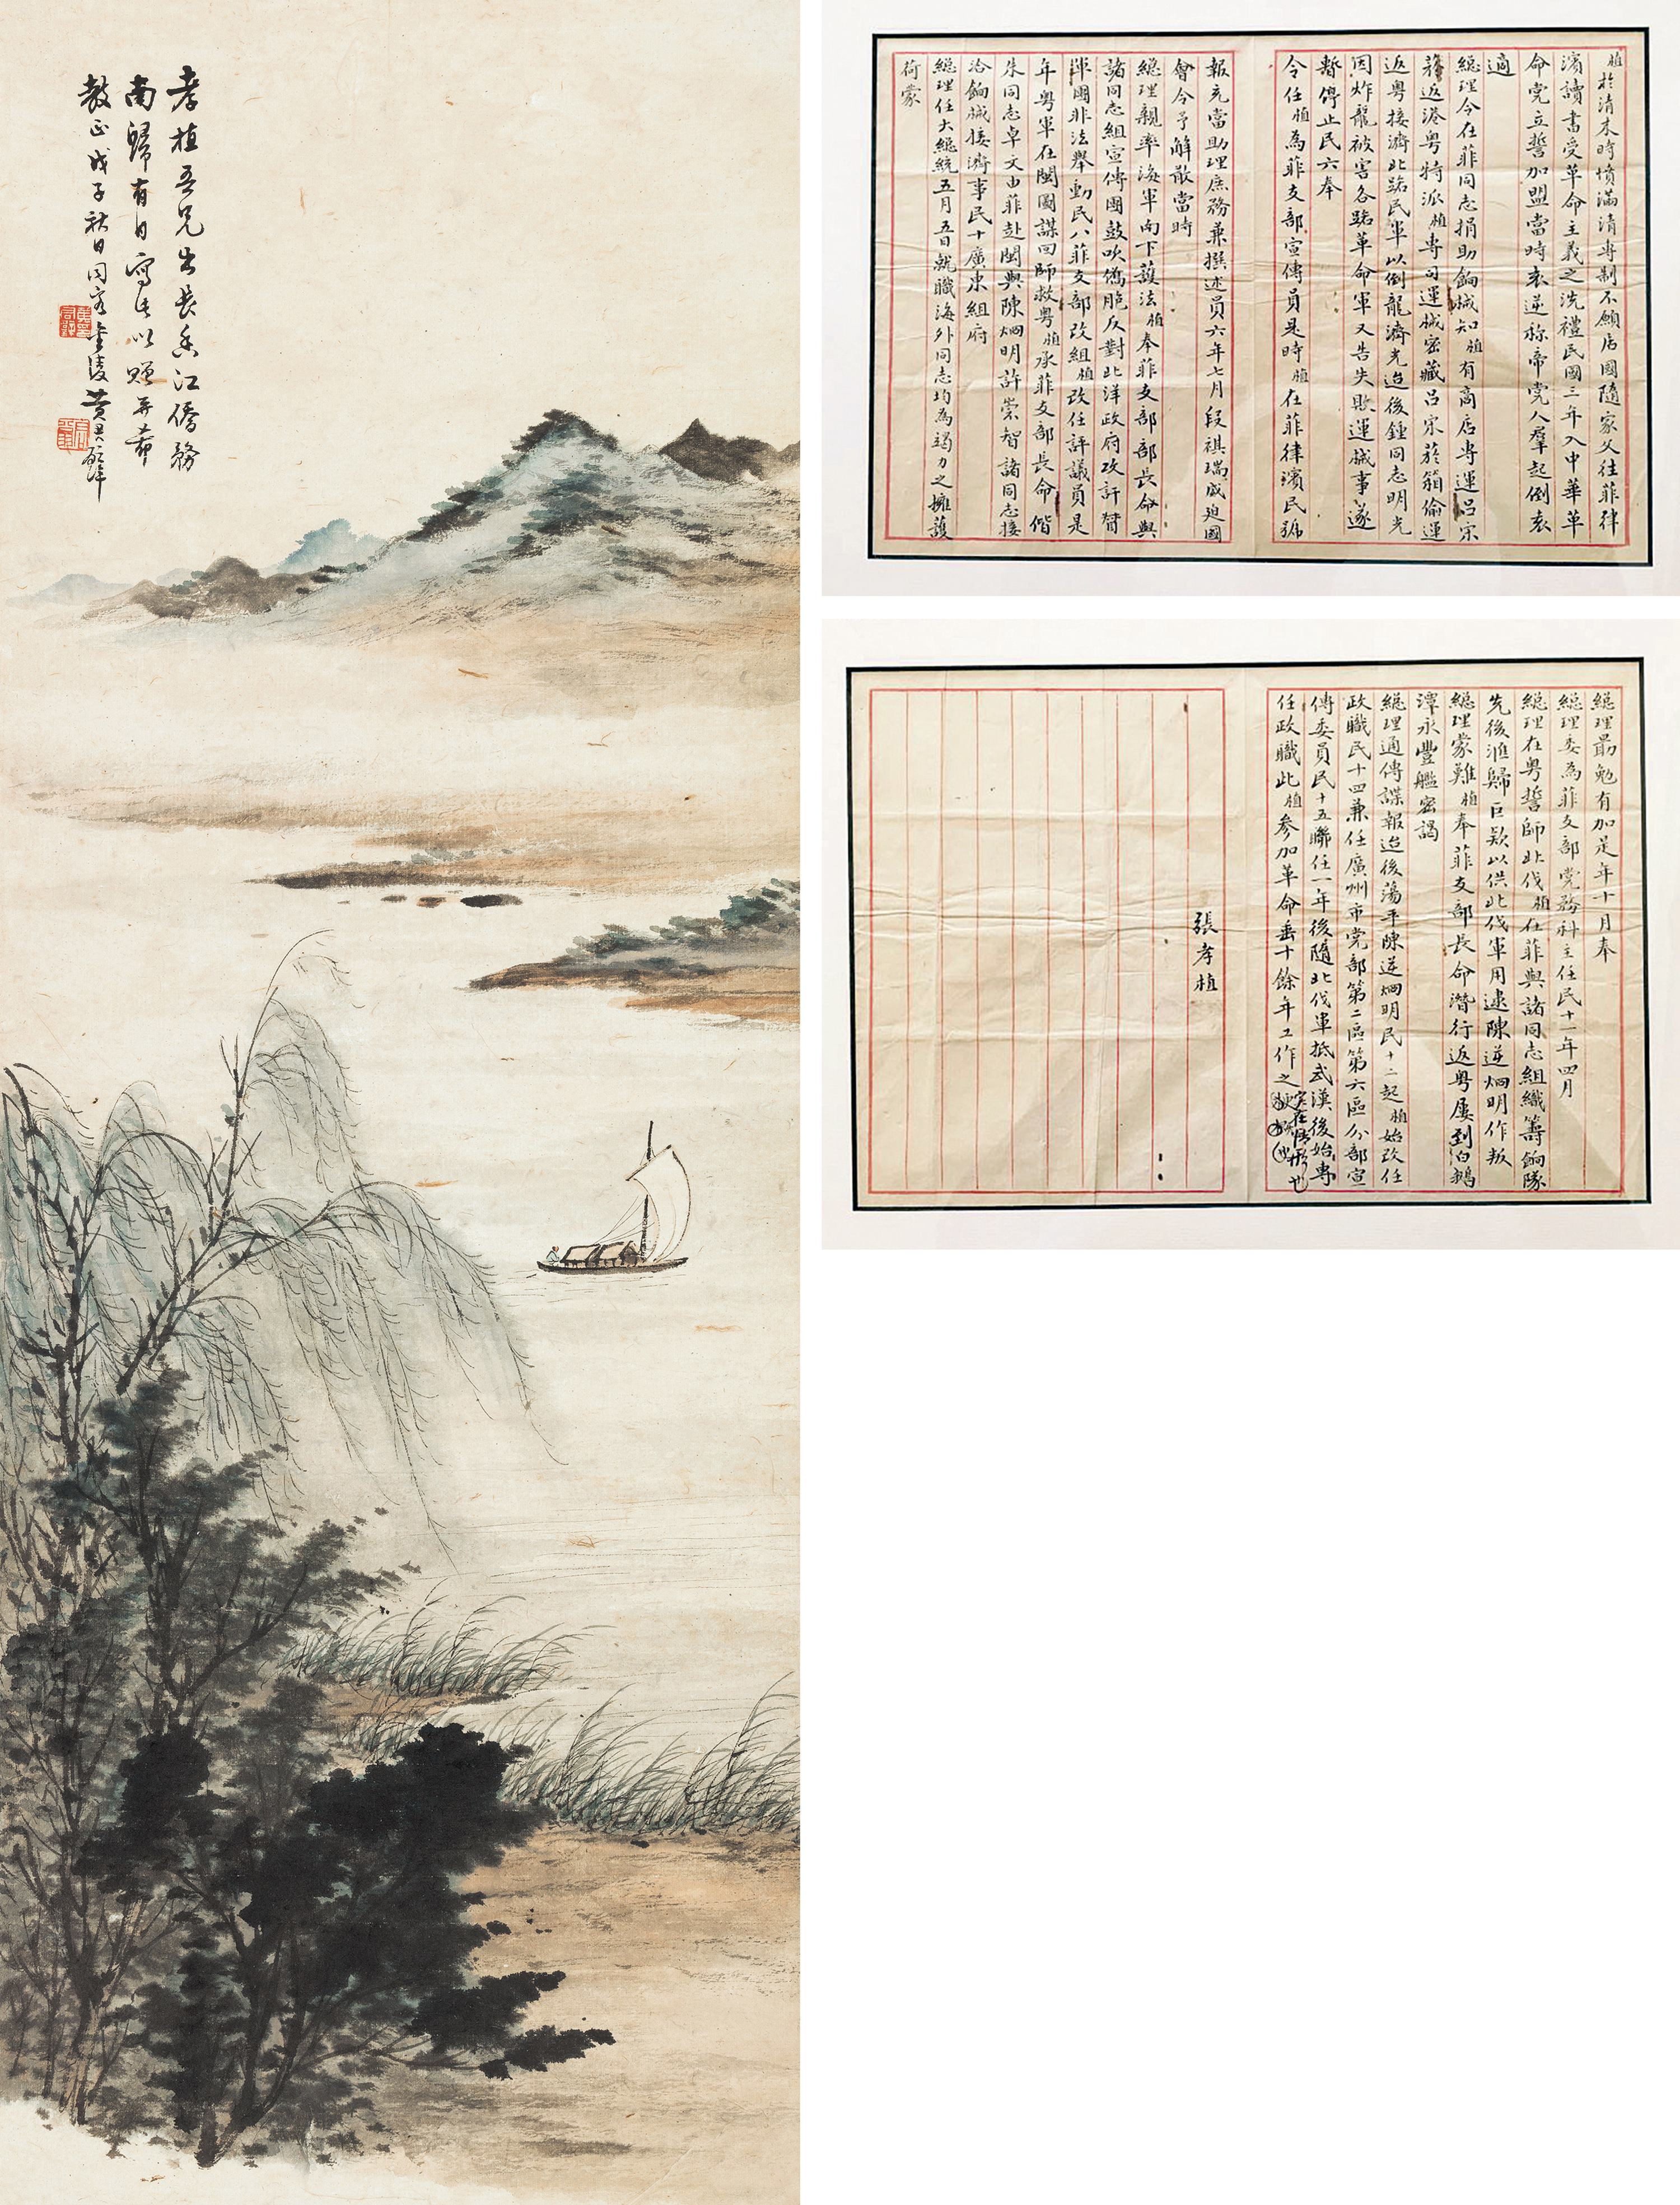 孝植吾兄出長香江僑務
南歸有日寫此以贈并希
教正戊子秋日同客金陵黃君璧
植於清末時憤滿清專制不願居國隨家父往菲律
濱讀書受革命主義之洗禮民國三年入中華革
命党立誓加盟當時袁逆称帝党人羣起倒袁
適
總理令在菲同志捐助餉械知植有商店專運呂宋
菸返港粤特派植專司運械密藏呂宋菸箱偷運
返粤接濟北路民軍以倒龍濟光迨後鍾同志明光
因炸龍被害各路革命軍又告失敗運械事遂
暫停止民六奉
令任植為菲支部宣傳員是時植在菲律濱民號
報充當助理庶務兼撰述員六年七月段祺瑞威迫國
會令予解散當時
總理親率海軍南下護法植奉菲支部部長命與
諸同志組宣傳團鼓吹僑胞反對北洋政府攻訐督
軍團非法舉動民八菲支部改組植改任評議員是
年粤軍在閩圖謀回師救粤植承菲支部長命偕
朱同志卓文由菲赴閩與陳炯明許崇智諸同志接
洽餉械接濟事民十廣東組府
總理任大總統五月五日就職海外同志均為竭力之擁護
荷蒙
總理勗勉有加是年十月奉
總理委為菲支部党務科主任民十一年四月
總理在粤誓師北伐植在菲與諸同志組織籌餉隊
先後滙歸巨款以供北伐軍用逮陳逆炯明作叛
總理蒙難植奉菲支部長命潛行返粤屢到白鵝
潭永豐艦密謁
總理通傳諜報迨後蕩平陳逆炯明民十二起植始改任
政職民十四兼任廣州市党部第二區第六區分部宣
傳委員民十五聯任一年後隨北伐軍抵武漢後始專
任政職此植參加革命垂十餘年工作之
實在情形也
張孝植